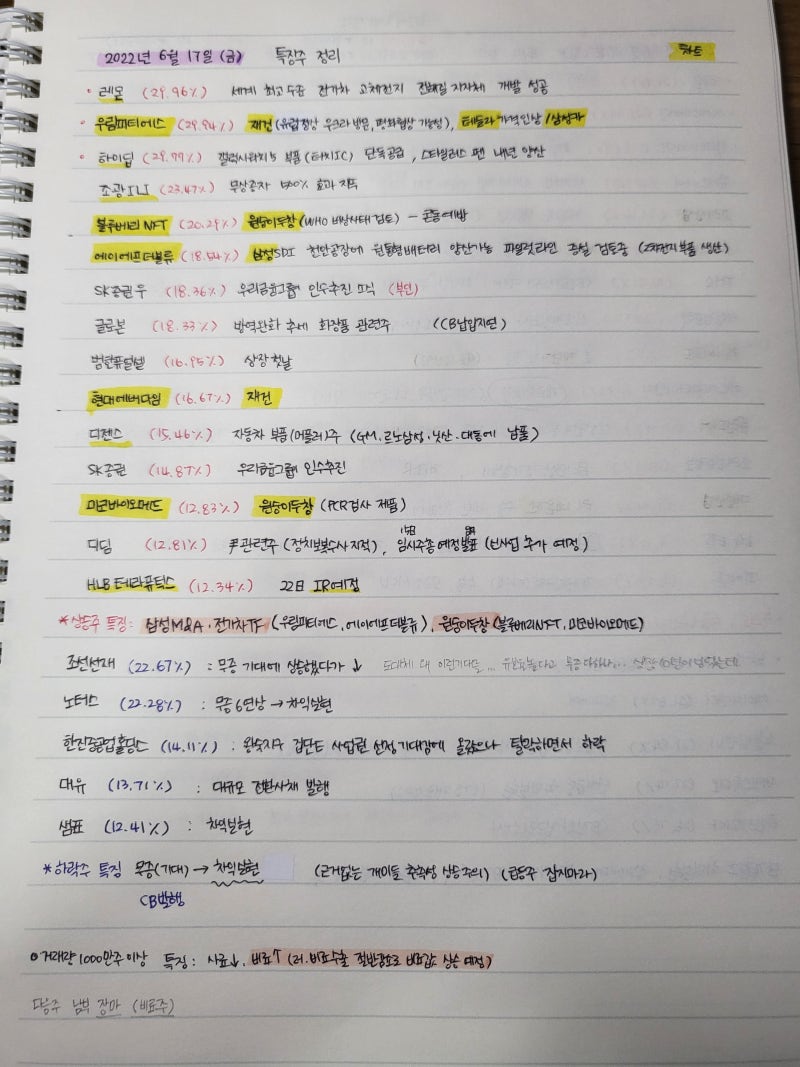 2022년 6월 17일 (금) 특징주 정리 차트
• 레몬 (29.96%) 세계 최고 수준 전기차 고체전지 전해질 지지체 개발 성공
• 우림피티에스 (29.94%) 재건 (유럽정상 우크라 방문, 평화협상 가능성), 테슬라 가격인상 / 삼성카
• 하이딥 (29.99%) 갤럭시워치5 부품 (터치IC) 단독공급, 스타일러스 펜 내년 양산
조광ILI (23.47%) 무상증자 500% 효과 지속
블루베리 NFT (20.29%) 원숭이두창 (WHO 비상사태 검토) - 콘돔예방
에이에프더블류 (18.54%) 삼성SDI 천안공장에 원통형배터리 양산가능 파일럿라인 증설 검토중 (2차전지부품 생산)
SK증권우 (18.36%) 우리금융그룹 인수추진 소식 (부인)
글로본 (18.33%) 방역완화 추세 화장품 관련주 (CB납입지연)
범한퓨얼셀 (16.95%) 상장 첫날
현대에버다임 (16.67%) 재건
디젠스 (15.46%) 자동차 부품(머플러)주 (GM.르노삼성.닛산.대동에 납품)
SK증권 (14.87%) 우리금융그룹 인수추진
미코바이오메드 (12.83%) 원숭이두창 (PCR검사 제품)
디딤 (12.81%) 尹관련주 (정치보복수사 지적), 임시주총 예정발표 (신사업 추가 예정)
HLB테라퓨틱스 (12.34%) 22일 IR예정
*상승주 특징: 삼성M&A.전기차TF (우림피티에스, 에이에프더블류), 원숭이두창 (블루베리NFT, 미코바이오메드)
조선선재 (22.67%) : 무증 기대에 상승했다가 ↓
노터스 (22.28%) : 무증 6연상 → 차익실현
한진중공업홀딩스 (14.11%) : 왕숙지구 집단E 사업권 선정 기대감에 올랐으나 탈락하면서 하락
대유 (13.71%) : 대규모 전환사채 발행
샘표 (12.41%) : 차익실현
*하락주 특징 무증(기대) → 차익실현 (근거없는 개미들 추측성 상승주의) (급등주 잡지마라)
CB발행
○ 거래량 1000만주 이상 특징: 사료↓. 비료↑ (러.비료수출 절반감소로 비료값 상승 예정)
다음주 남부 장마 (비료주)